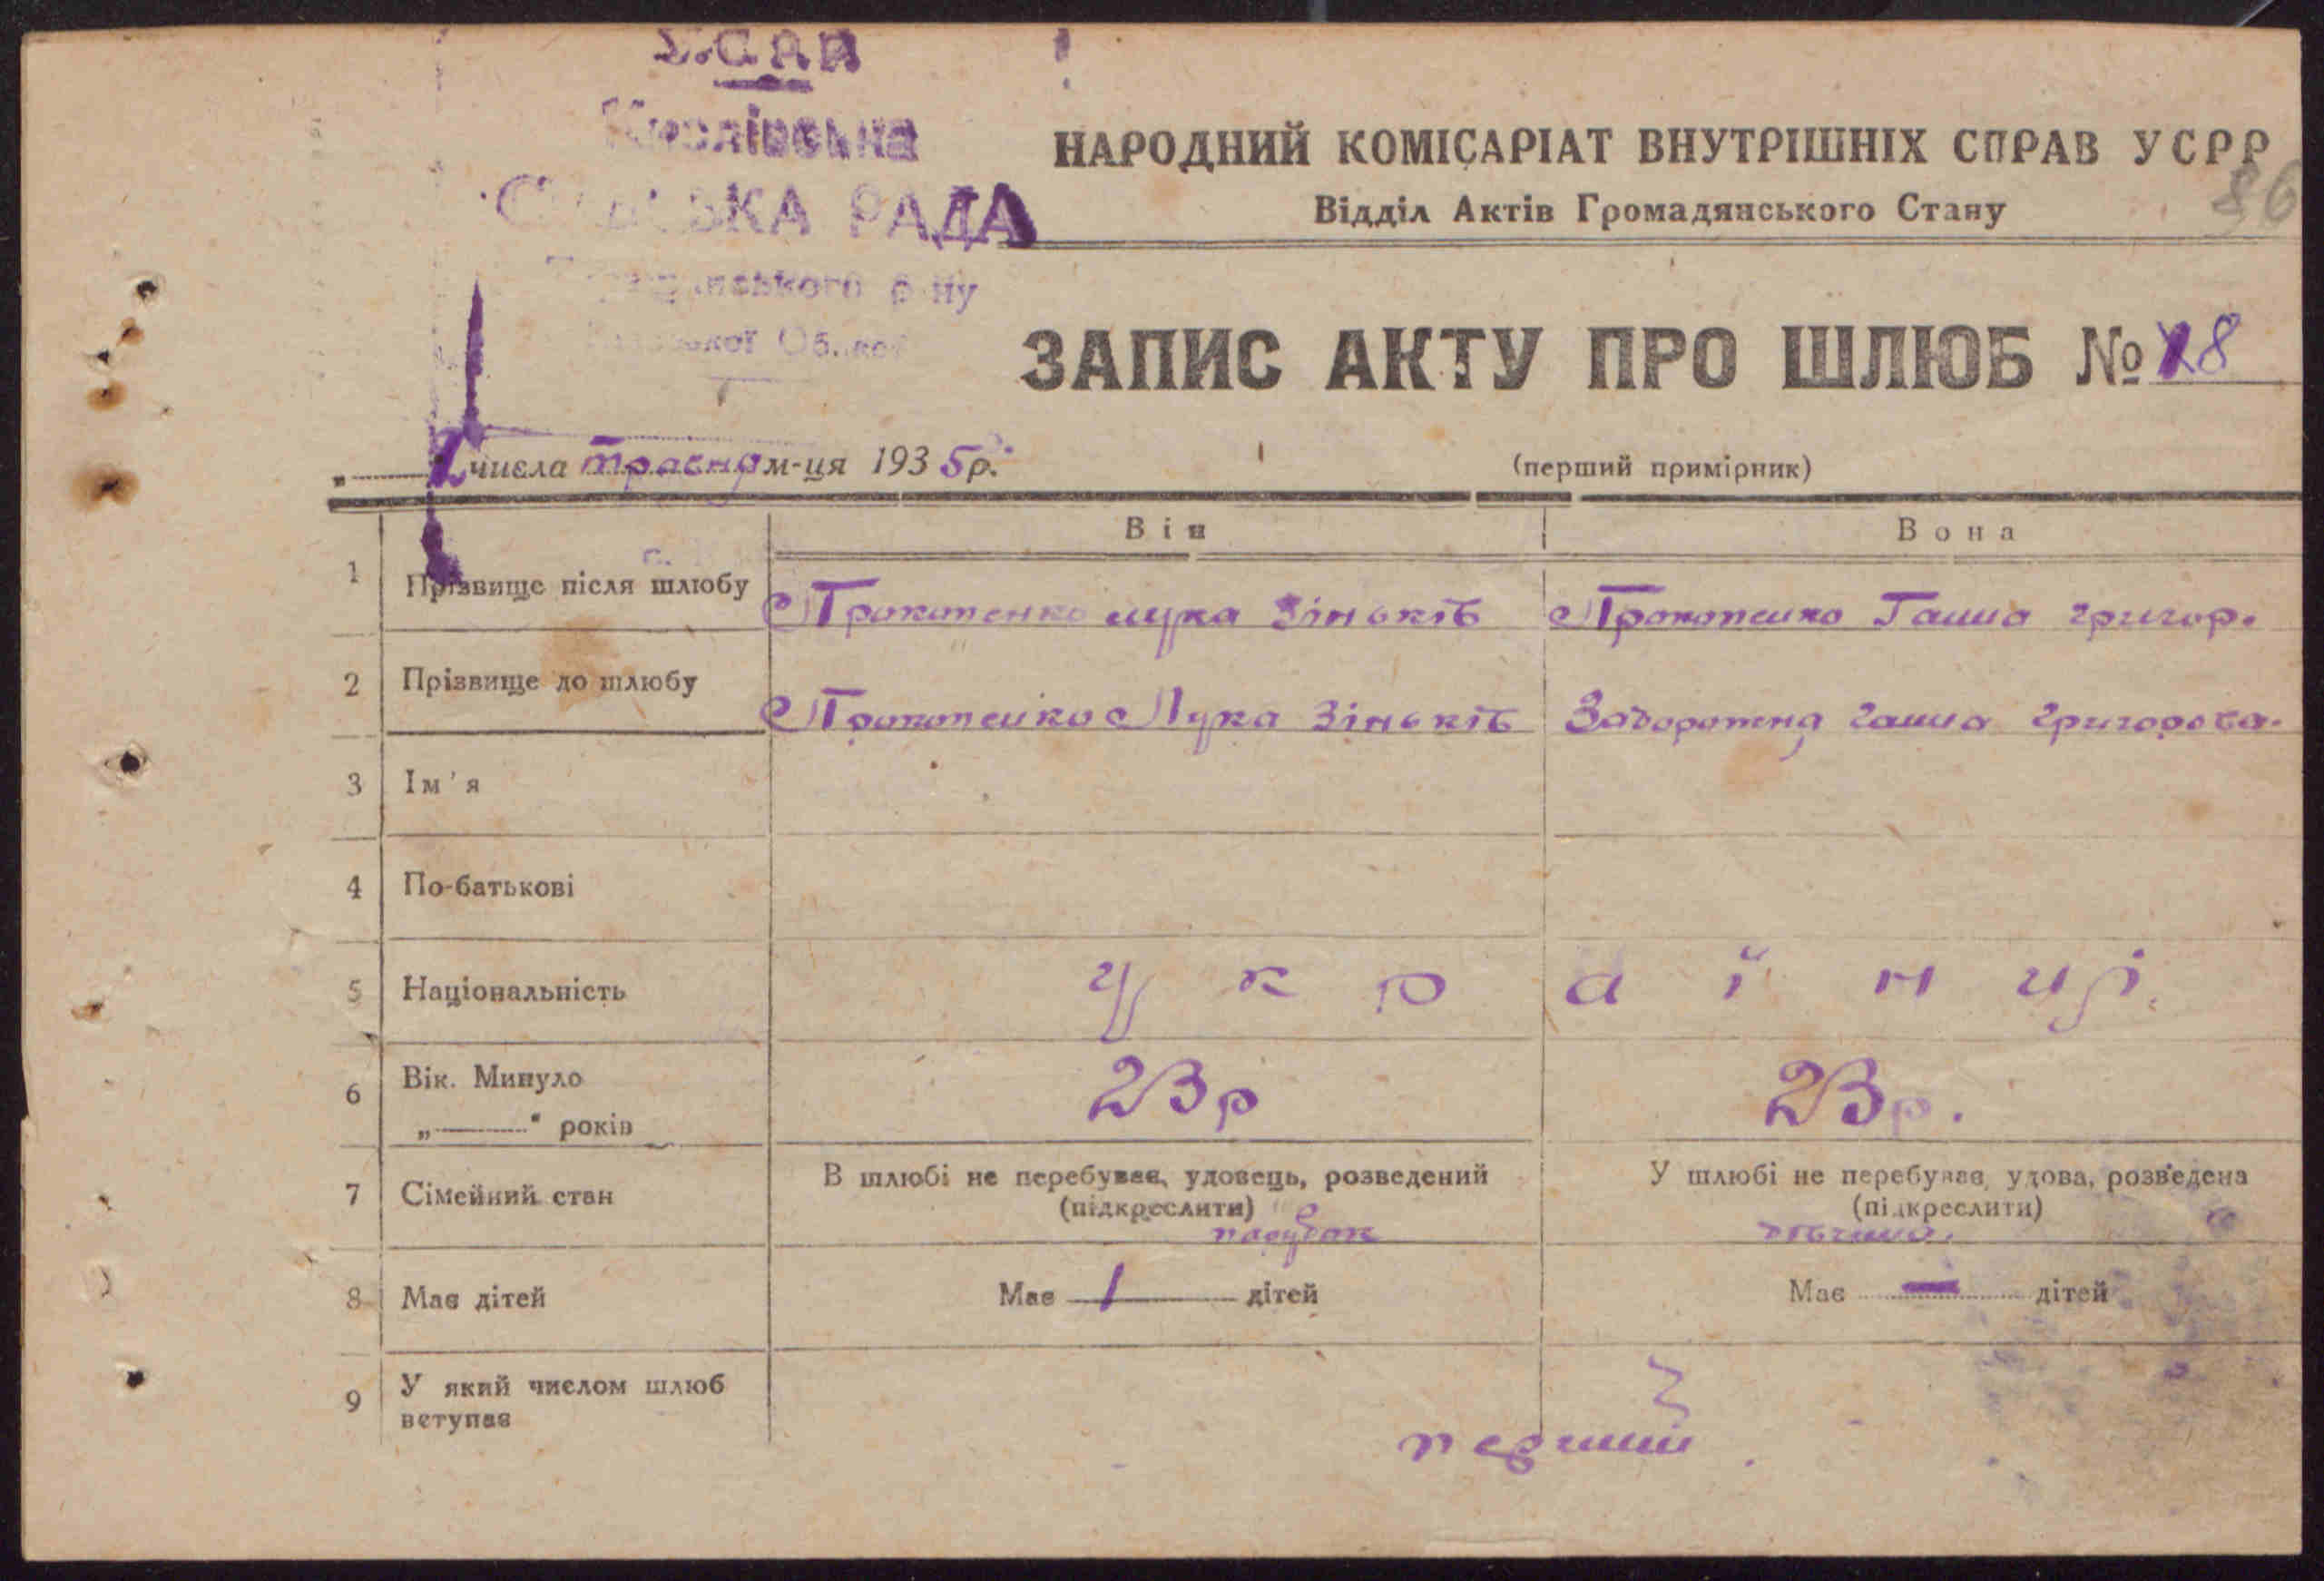 НАРОДНИЙ КОМІСАРІАТ ВНУТРІШНІХ СПРАВ УСРР
86
Відділ Актів Громадянського Стану
РАДА
ЗАПИС АКТУ ПРО ШЛЮБ № 8
числа травня м-ця 1935 р.
(перший примірник)
Він Вона
1 Прізвище після шлюбу Прокопенко Лука Зіньків Прокопенко Ганна Григор.
2 Прізвище до шлюбу Прокопенко Лука Зіньків Задорожна Ганна Григорова.
3 Ім'я
4 По-батькові
5 Національність українці.
6 Вік. Минуло „ " років 23 р 23 р.
7 Сімейний стан
В шлюбі не перебуває, удовець, розведений
(підкреслити)
парубок
У шлюбі не перебуває, удова, розведена
(підкреслити)
8 Має дітей Має / дітей Має — дітей
9 У який числом шлюб вступає
перший